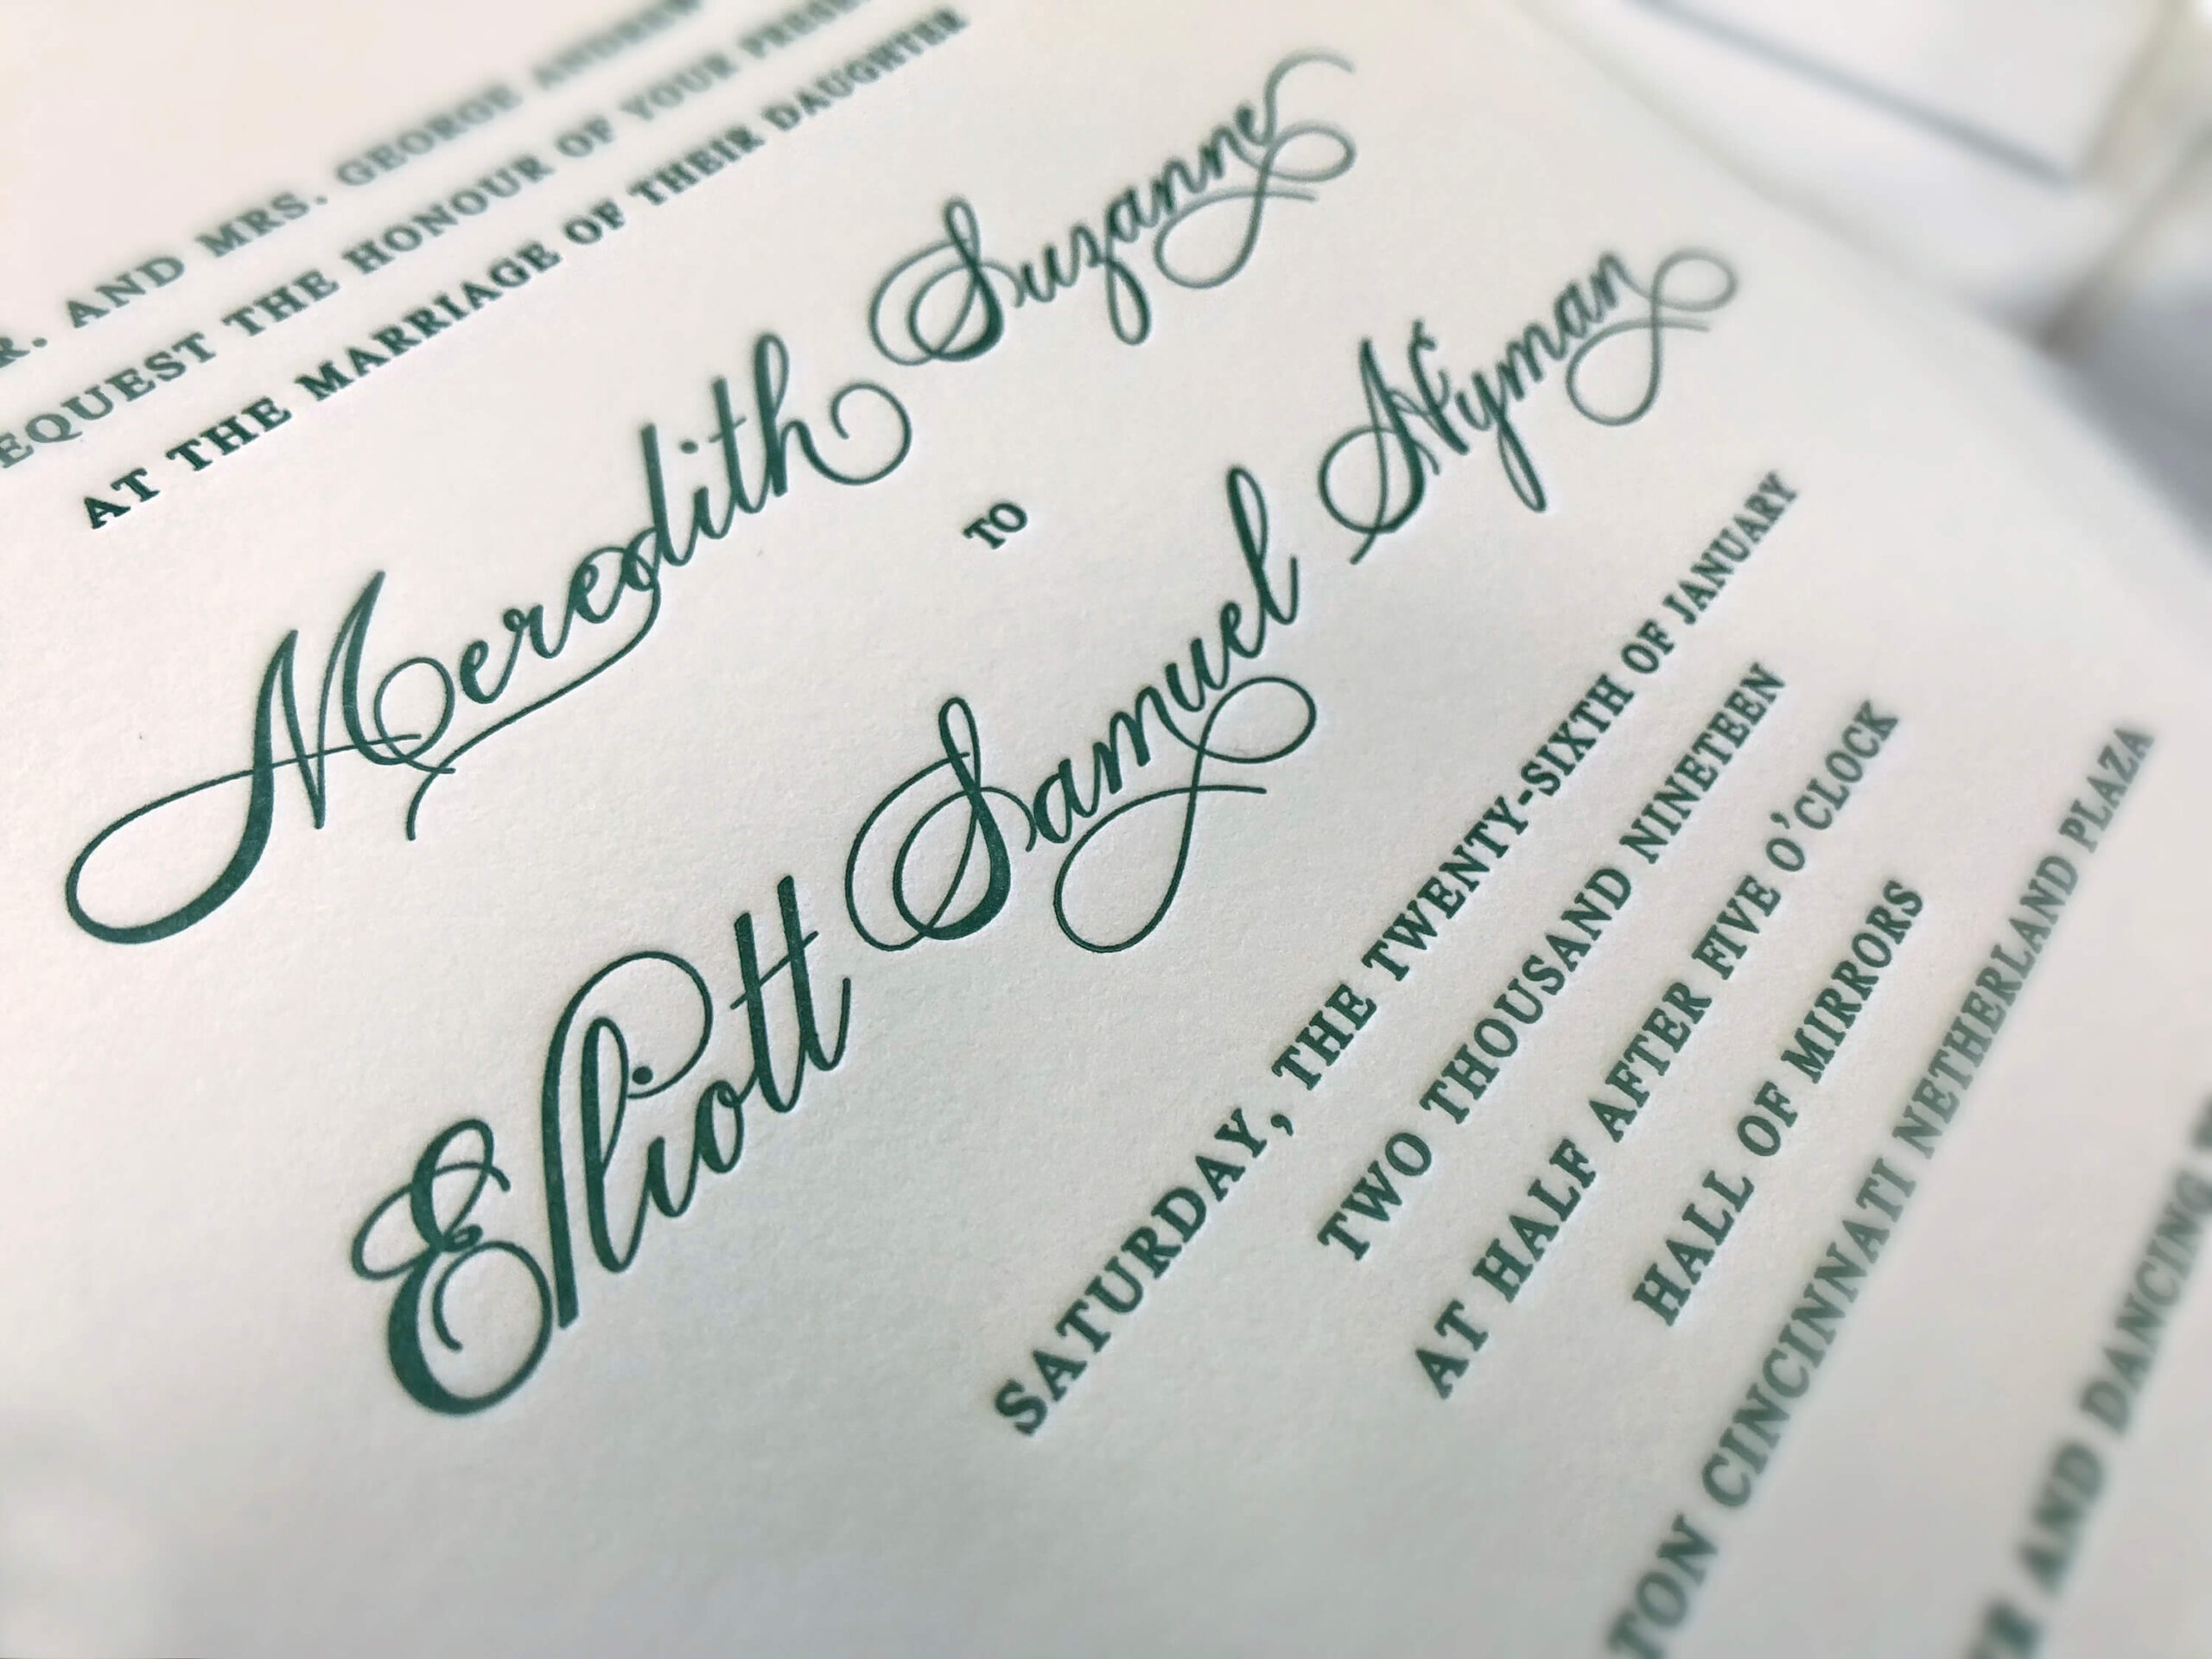 AND MRS. GEORGE ANDREW
THE HONOUR OF YOUR
AT THE MARRIAGE OF THEIR DAUGHTER
Meredith Suzanne
TO
Elliott Samuel Nyman
SATURDAY, THE TWENTY-SIXTH OF JANUARY
TWO THOUSAND NINETEEN
AT HALF AFTER FIVE O'CLOCK
HALL OF MIRRORS
CINCINNATI NETHERLAND PLAZA
AND DANCING